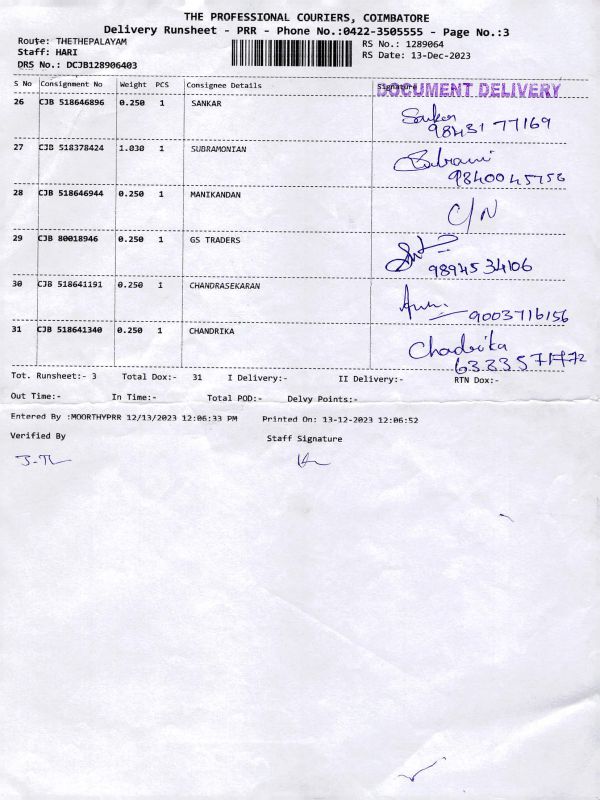 THE PROFESSIONAL COURIERS, COIMBATORE
Delivery Runsheet - PRR - Phone No.:0422-3505555 - Page No.:3
Route: THETHEPALAYAM
RS No.: 1289064
Staff: HARI
RS Date: 13-Dec-2023
DRS No.: DCJB128906403
S No Consignment No Weight PCS Consignee Details Signature
DOCUMENT DELIVERY
26 CJB 518646896 0.250 1 SANKAR
Sankar
98431 77169
27 CJB 518378424 1.030 1 SUBRAMONIAN
9840045756
28 CJB 518646944 0.250 1 MANIKANDAN
C/N
29 CJB 80018946 0.250 1 GS TRADERS
9894534106
30 CJB 518641191 0.250 1 CHANDRASEKARAN
9003716156
31 CJB 518641340 0.250 1 CHANDRIKA
Chadrika
Tot. Runsheet:- 3 Total Dox:- 31 I Delivery:- II Delivery:- RTN Dox:-
Out Time:- In Time:- Total POD:- Delvy Points:-
Entered By :MOORTHYPRR 12/13/2023 12:06:33 PM Printed On: 13-12-2023 12:06:52
Verified By Staff Signature